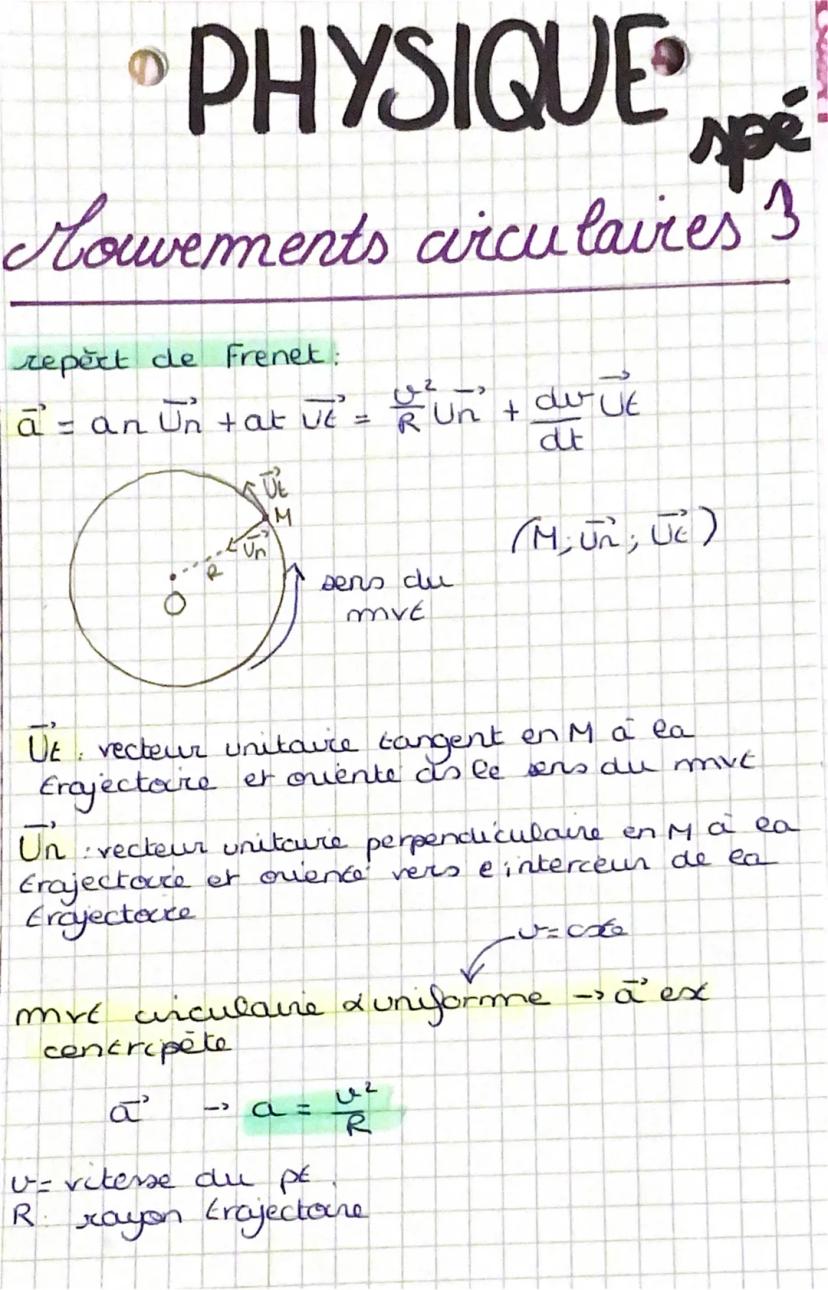 PHYSIQUE
spé
Mouvements circulaires 3
repèrt de Frenet:
a⃗ = an Un⃗ + at Ut⃗ = v²/R Un⃗ + dv/dt Ut⃗
Ut⃗
M
Un⃗
R
O
(M; Un⃗; Ut⃗)
sens du
mvt
Ut⃗ : vecteur unitaire tangent en M à la
trajectoire et orienté ds le sens du mvt
Un⃗ : vecteur unitaire perpendiculaire en M à la
trajectoire et orienté vers l'intérieur de la
trajectoire
v = cste
mvt circulaire & uniforme → a⃗ est
centripète
a⃗ → a = v²/R
v = vitesse du pt.
R: rayon trajectoire